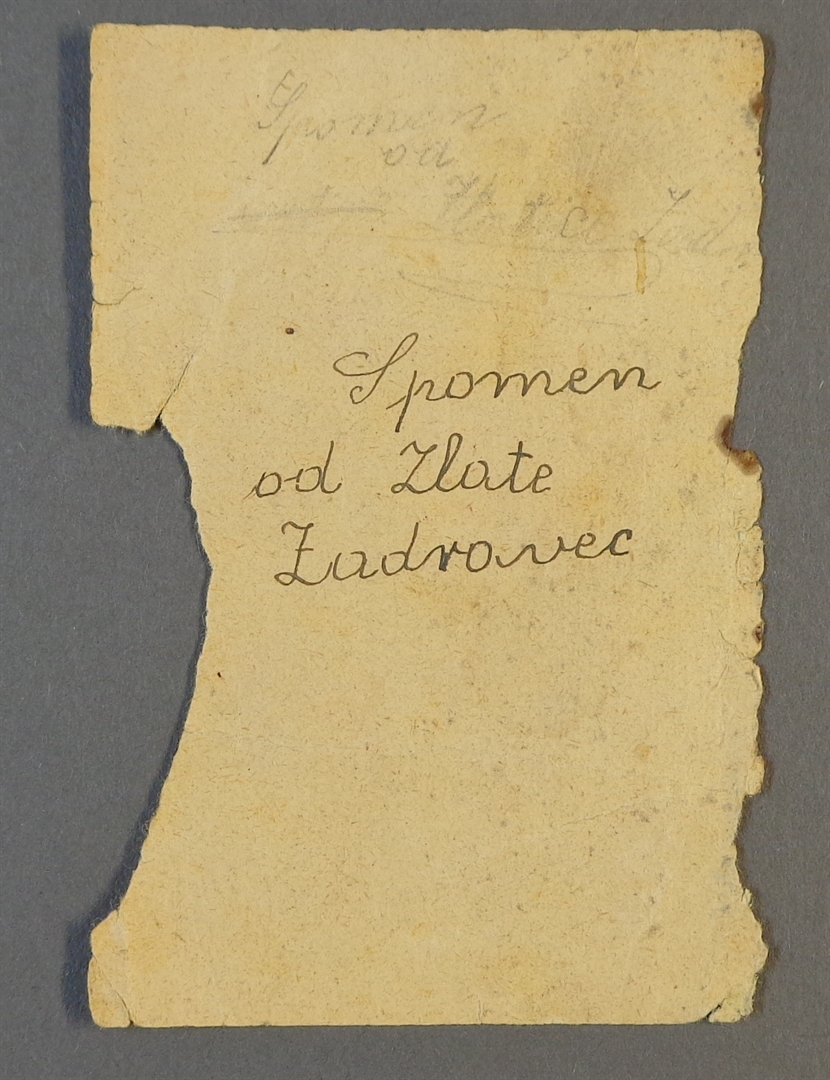 Spomen
od
Zlatice Zad
Spomen
od Zlate
Zadravec